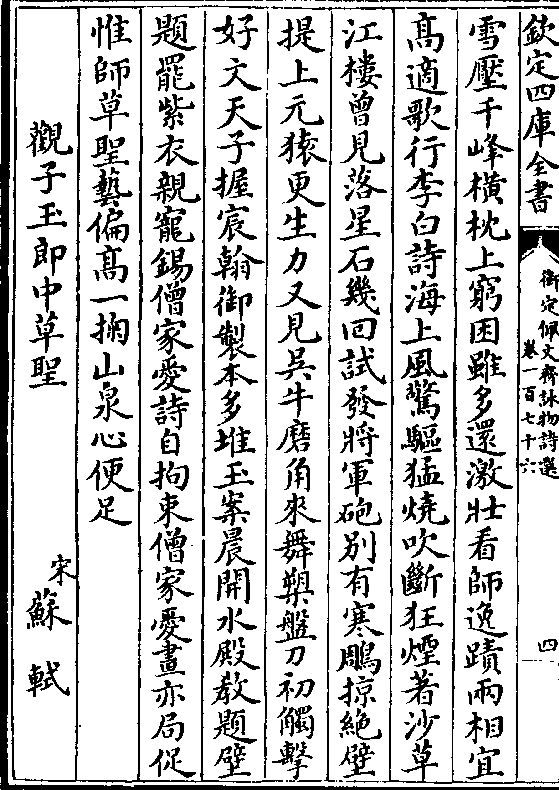 欽定四庫全書
御定佩文齋詠物詩選
卷一百七十六
四
雪壓千峰橫枕上窮困雖多還激壯看師逸蹟兩相宜
髙適歌行李白詩海上風驚驅猛燒吹斷狂煙著沙草
江樓曾見落星石幾回試發將軍砲别有寒鵰掠絶壁
提上元猿更生力又見吳牛磨角來舞槊盤刀初觸擊
好文天子握宸翰御製本多堆玉案晨開水殿教題壁
題罷紫衣親寵錫僧家愛詩自拘束僧家愛畫亦局促
惟師草聖藝偏髙一掬山泉心便足
觀子玉郎中草聖
宋蘇軾